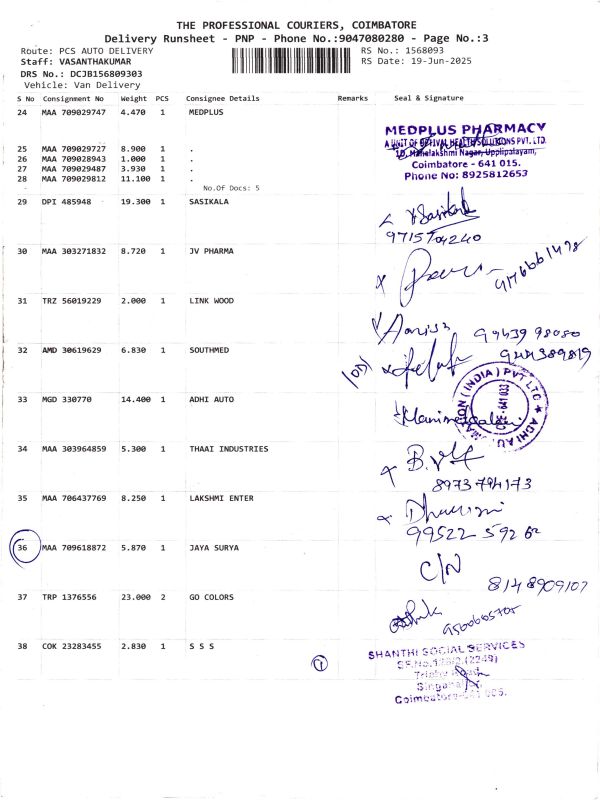 THE PROFESSIONAL COURIERS, COIMBATORE
Delivery Runsheet - PNP - Phone No.:9047080280 - Page No.:3
Route: PCS AUTO DELIVERY
RS No.: 1568093
Staff: VASANTHAKUMAR
RS Date: 19-Jun-2025
DRS No.: DCJB156809303
Vehicle: Van Delivery
S No Consignment No Weight PCS Consignee Details Remarks Seal & Signature
24 MAA 709029747 4.470 1 MEDPLUS
MEDPLUS PHARMACY
A UNIT OF OPTIVAL HEALTH SOLUTIONS PVT. LTD.
10, Mahalakshmi Nagar, Upplipalayam,
Coimbatore - 641 015.
Phone No: 8925812653
25 MAA 709029727 8.900 1 .
26 MAA 709028943 1.000 1 .
27 MAA 709029487 3.930 1 .
28 MAA 709029812 11.100 1 .
No.Of Docs: 5
29 DPI 485948 19.300 1 SASIKALA
Sasikala
9715704240
30 MAA 303271832 8.720 1 JV PHARMA
31 TRZ 56019229 2.000 1 LINK WOOD
32 AMD 30619629 6.830 1 SOUTHMED
33 MGD 330770 14.400 1 ADHI AUTO
34 MAA 303964859 5.300 1 THAAI INDUSTRIES
8973794173
35 MAA 706437769 8.250 1 LAKSHMI ENTER
99522 592 62
36 MAA 709618872 5.870 1 JAYA SURYA
C/N
8148909107
37 TRP 1376556 23.000 2 GO COLORS
38 COK 23283455 2.830 1 S S S
1
SHANTHI SOCIAL SERVICES